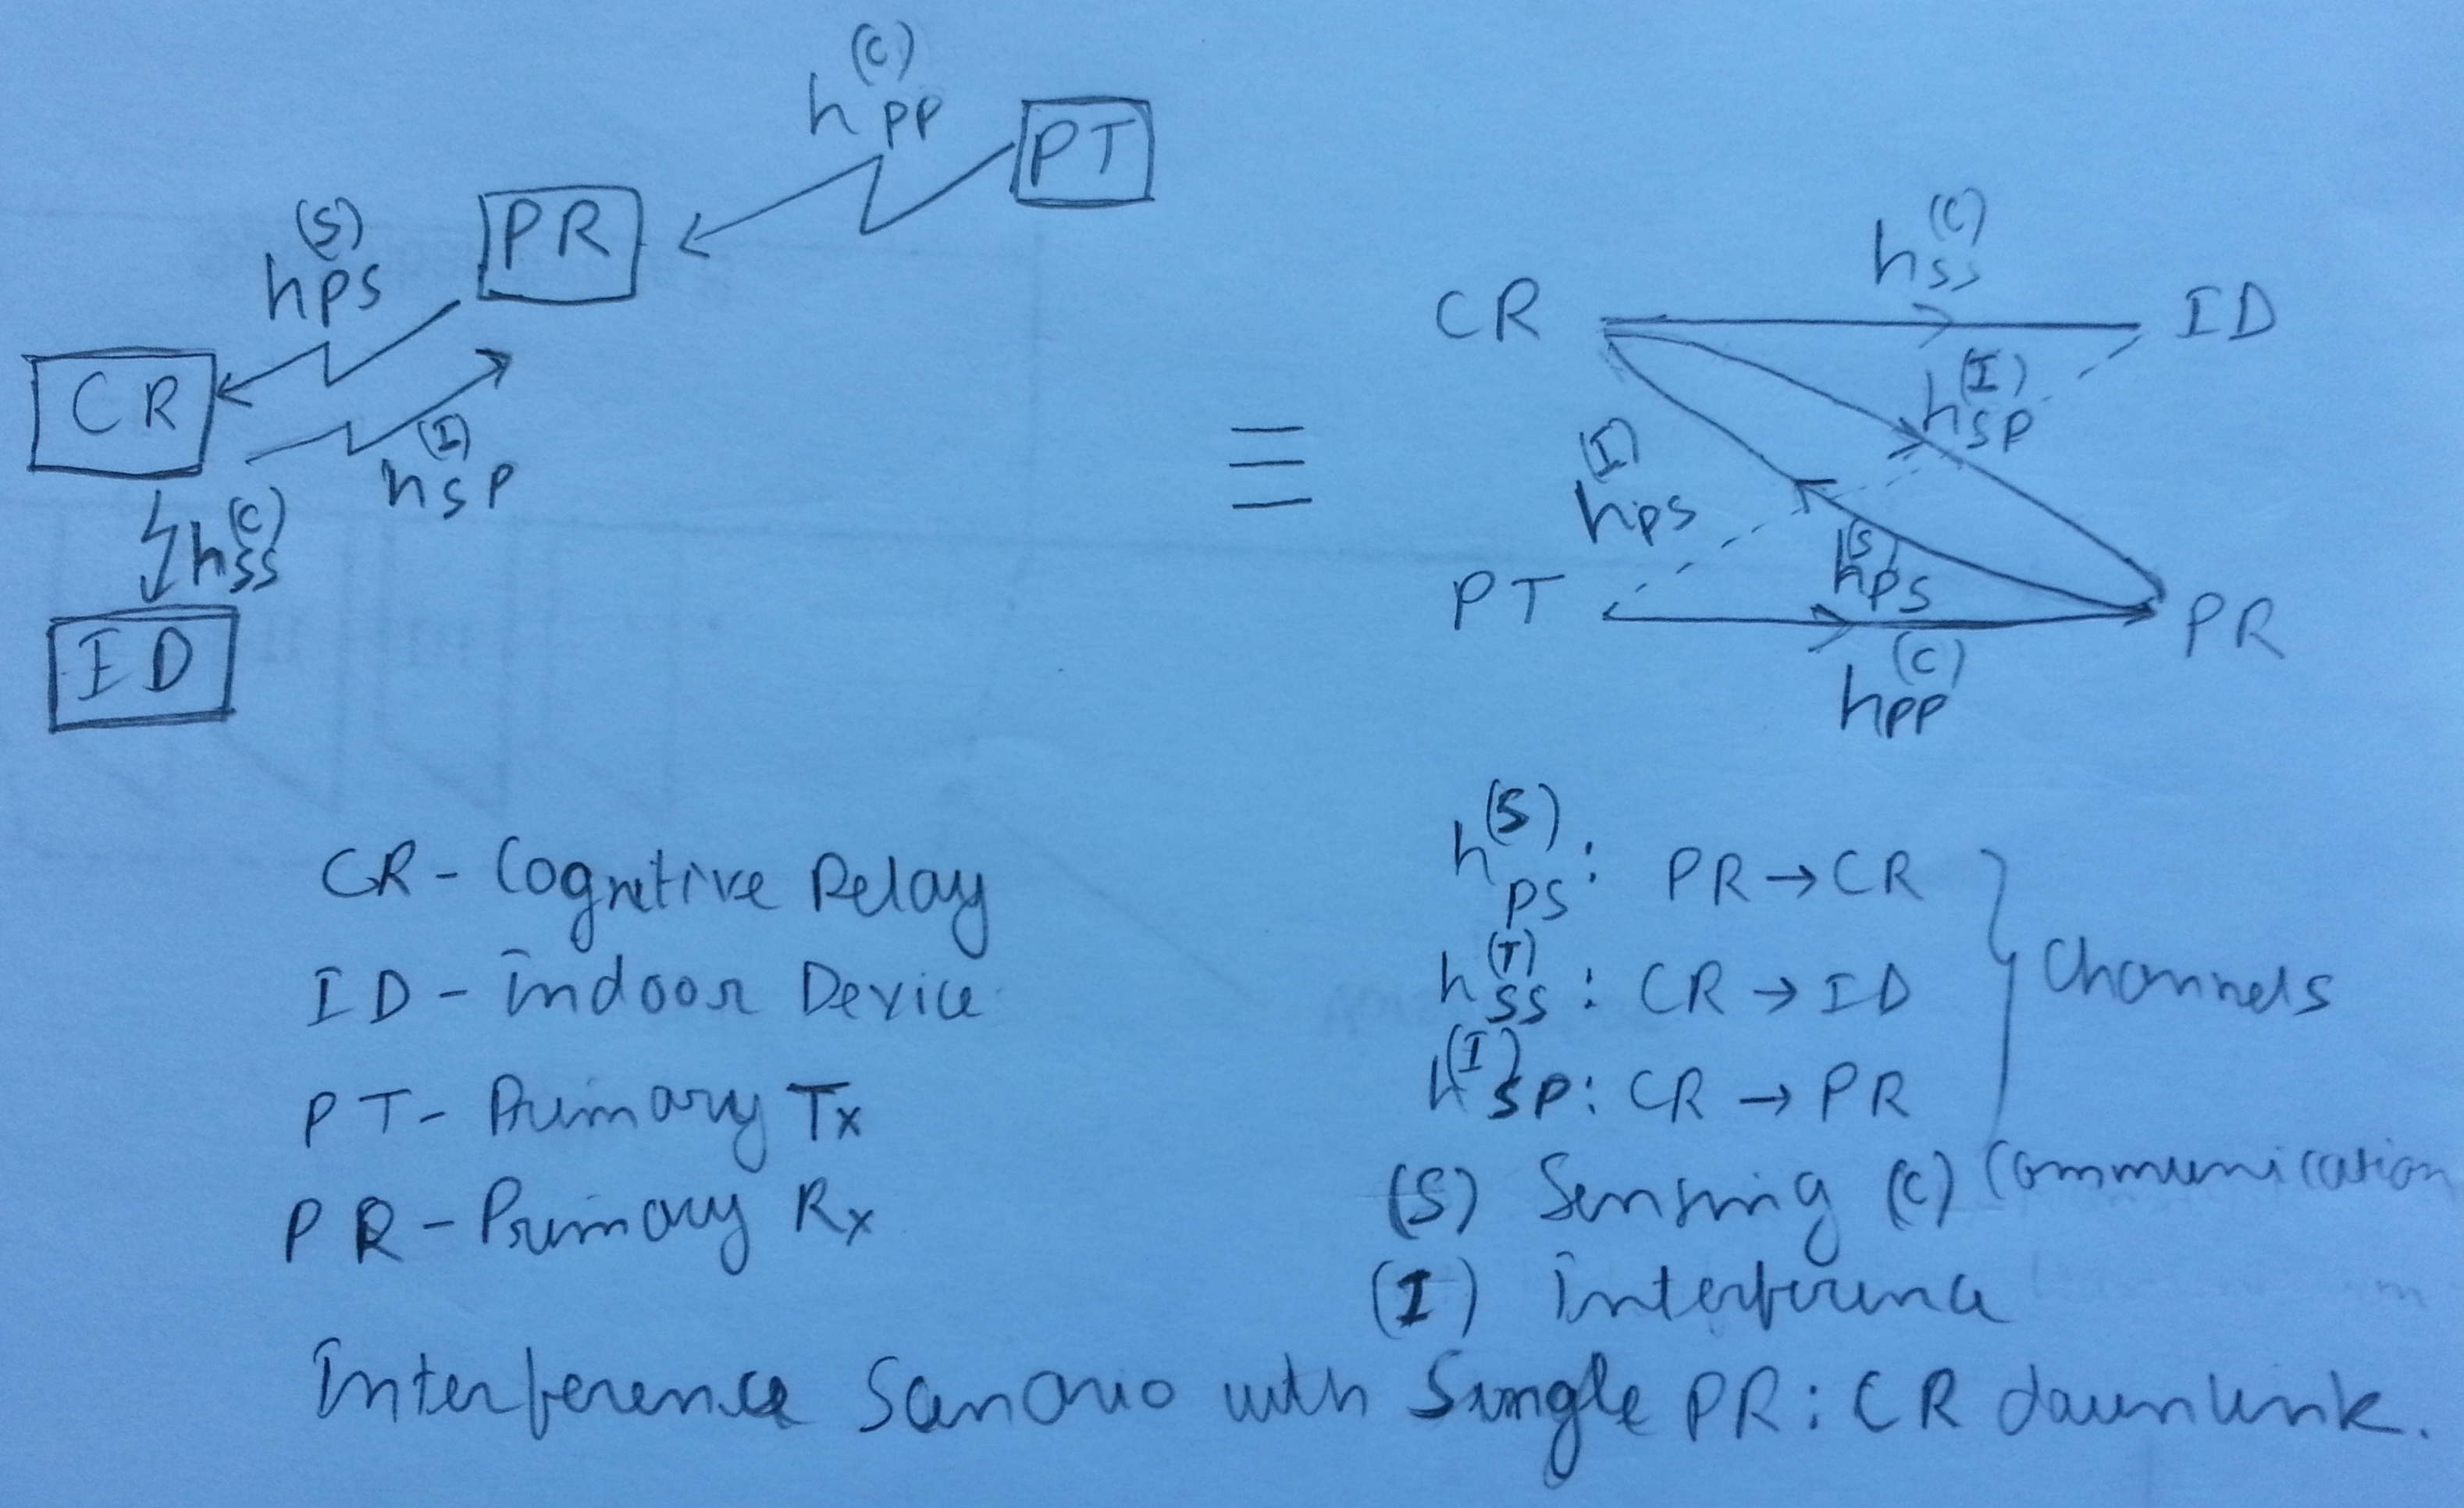 h_pp^(C)
PT
PR
h_ps^(S)
CR
h_sp^(I)
h_ss^(C)
ID
≡
h_ss^(C)
CR
ID
h_sp^(I)
h_ps^(I)
h_ps^(S)
PT
PR
h_pp^(C)
CR - Cognitive Relay
ID - Indoor Device
PT - Primary Tx
PR - Primary Rx
h_ps^(S) : PR → CR
h_ss^(T) : CR → ID
h_sp^(I) : CR → PR
Channels
(S) Sensing (C) Communication
(I) Interference
Interference Scenario with Single PR : CR downlink.